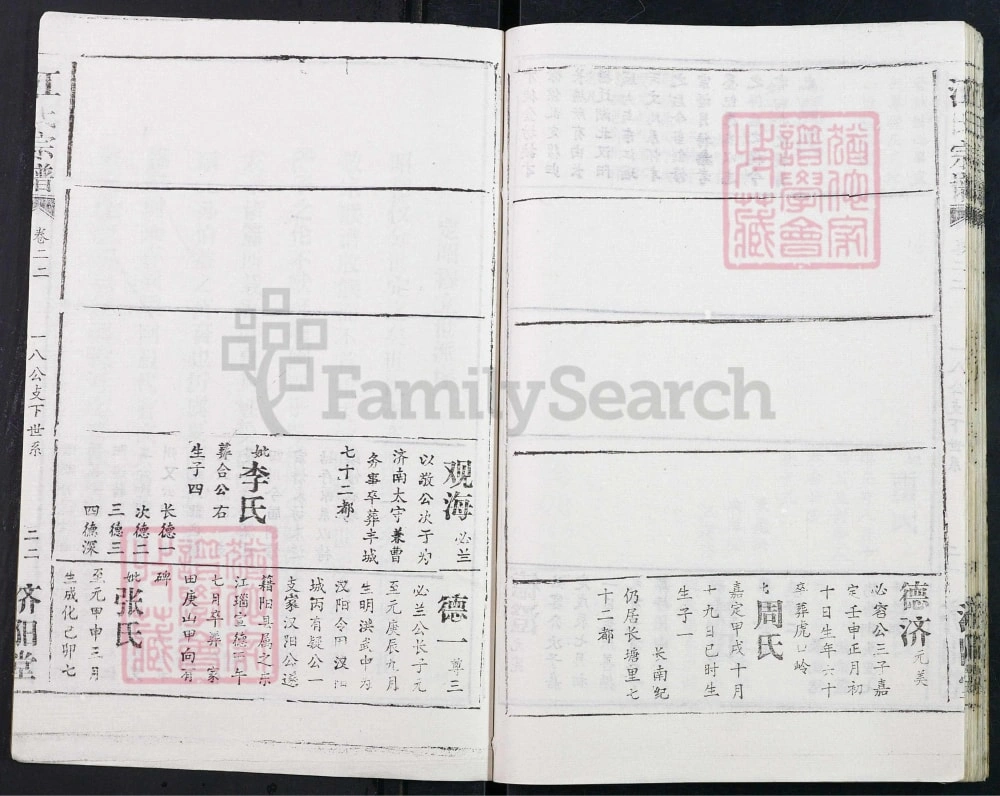 德济 元美
必容公三子嘉
定壬申正月初
十日生年六十
卒葬虎山岭
周氏
嘉定甲戌十月
十九日已时生
生子一
长南纪
仍居长塘里七
十二都
观海 必兰
以敬公次子为
济南太守兼曹
务事卒葬丰城
七十二都
妣李氏
葬合公右
生子四
长德一
次德二
三德三
四德深
德一 尊三
必兰公长子元
至元庚辰九月
生明洪武中为
汉阳令因汉阳
城丙有疑公一
支家汉阳公遂
籍阳县属之东
江瑙宣德丙午
七月卒葬 家
田庚山甲向有
碑
妣张氏
至元甲申三月
生成化己卯七
江氏宗谱
卷二二
一八公支下世系
二二
济阳堂
FamilySearch